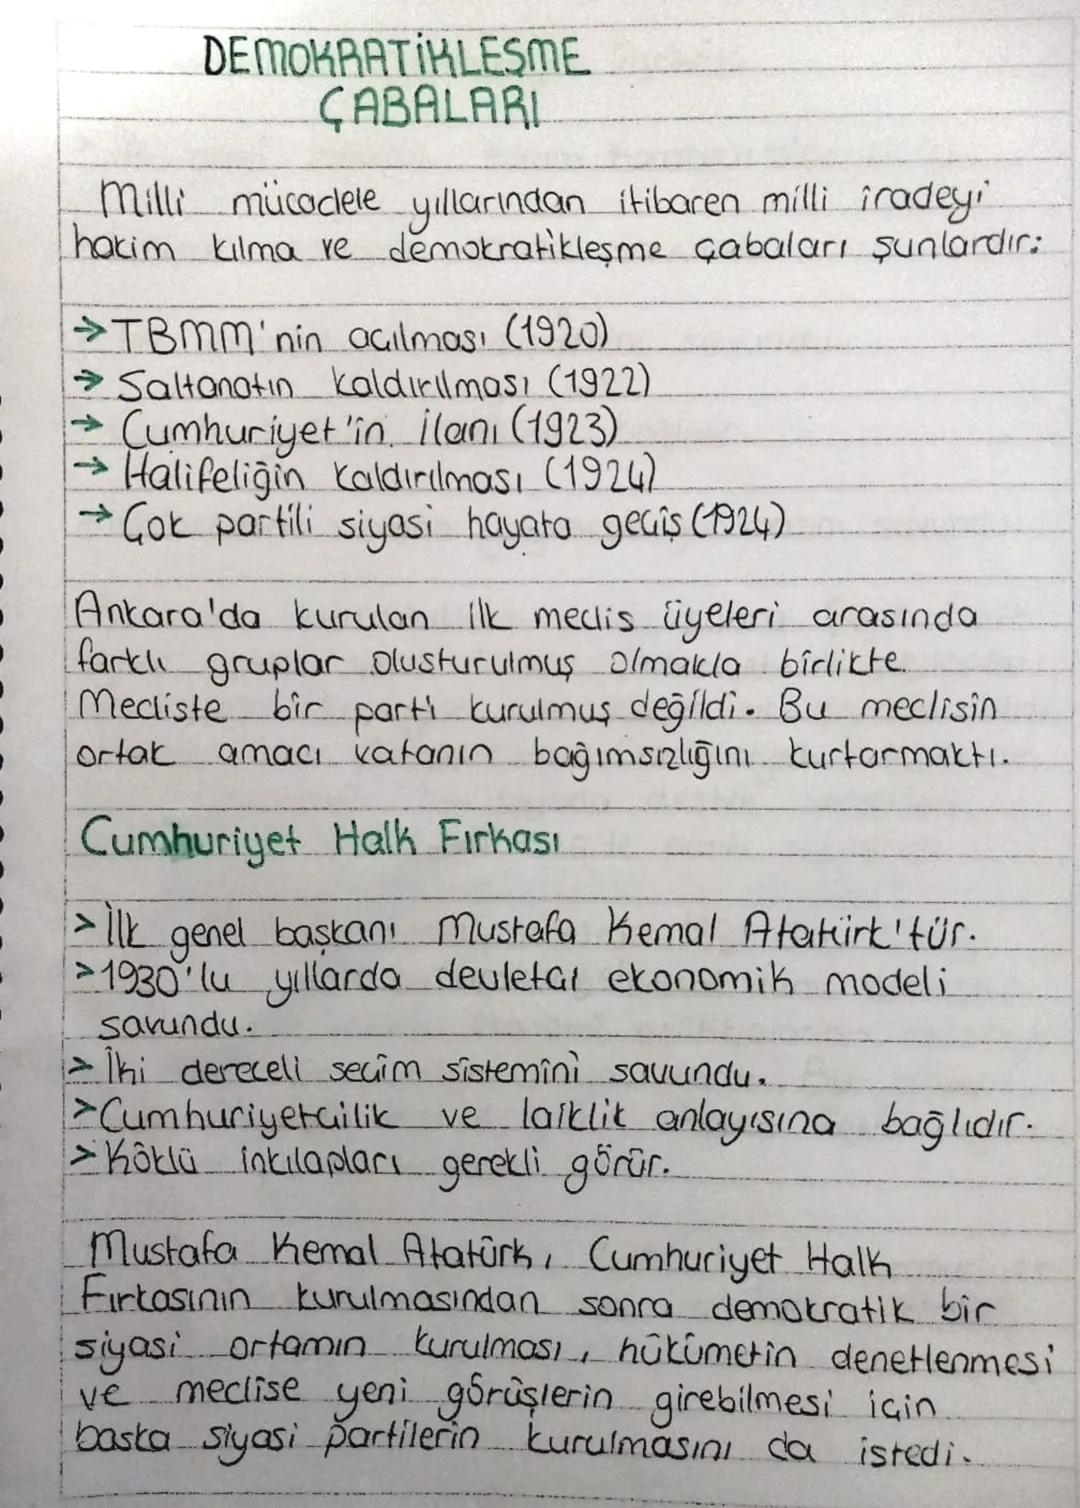 DEMOKRATİKLEŞME
ÇABALARI
Milli mücadele yıllarından itibaren milli iradeyi
hakim kılma ve demokratikleşme çabaları şunlardır:
→ TBMM'nin açılması (1920)
→ Saltanatın kaldırılması (1922)
→ Cumhuriyet'in ilanı (1923)
→ Halifeliğin kaldırılması (1924)
→ Çok partili siyasi hayata geçiş (1924)
Ankara'da kurulan ilk meclis üyeleri arasında
farklı gruplar oluşturulmuş olmakla birlikte.
Mecliste bir parti kurulmuş değildi. Bu meclisin
ortak amacı vatanın bağımsızlığını kurtarmaktı.
Cumhuriyet Halk Fırkası
> İlk genel başkanı Mustafa Kemal Atatürk'tür.
> 1930'lu yıllarda devletçi ekonomik modeli
savundu.
> İki dereceli seçim sistemini savundu.
> Cumhuriyetçilik ve laiklik anlayışına bağlıdır.
> Köklü inkılapları gerekli görür.
Mustafa Kemal Atatürk, Cumhuriyet Halk
Fırkasının kurulmasından sonra demokratik bir
siyasi ortamın kurulması, hükümetin denetlenmesi
ve meclise yeni görüşlerin girebilmesi için
başka siyasi partilerin kurulmasını da istedi.